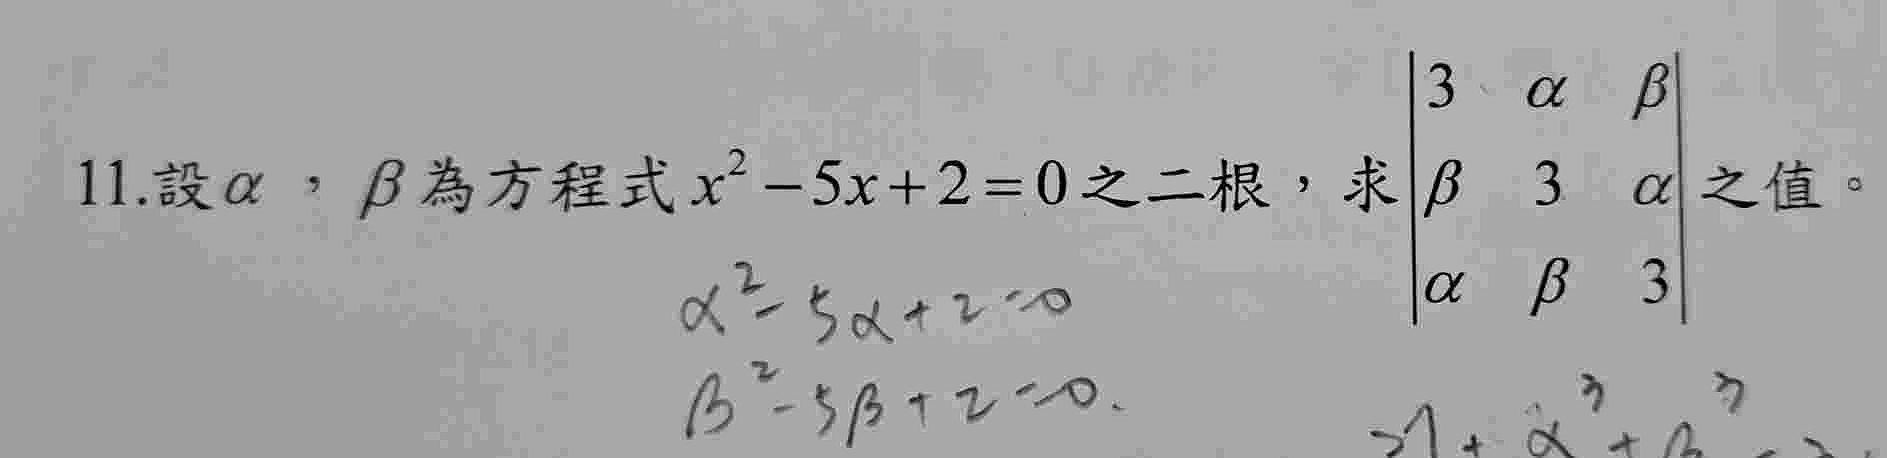 11.設α，β為方程式x²－5x＋2＝0之二根，求|3 α β|之值。
|β 3 α|
|α β 3|
α²-5α+2=0
β²-5β+2=0.
+ α³ + β³